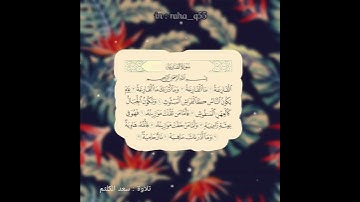 tt : raha_q55
سورة القارعة
بسم الله الرحمن الرحيم
القارعة ما القارعة وما أدراك ما القارعة يوم
يكون الناس كالفراش المبثوث وتكون الجبال
كالعهن المنفوش فأما من ثقلت موازينه فهو في
عيشة راضية وأما من خفت موازينه فأمه هاوية
وما أدراك ما هيه نار حامية
تلاوة : سعد الكلثم